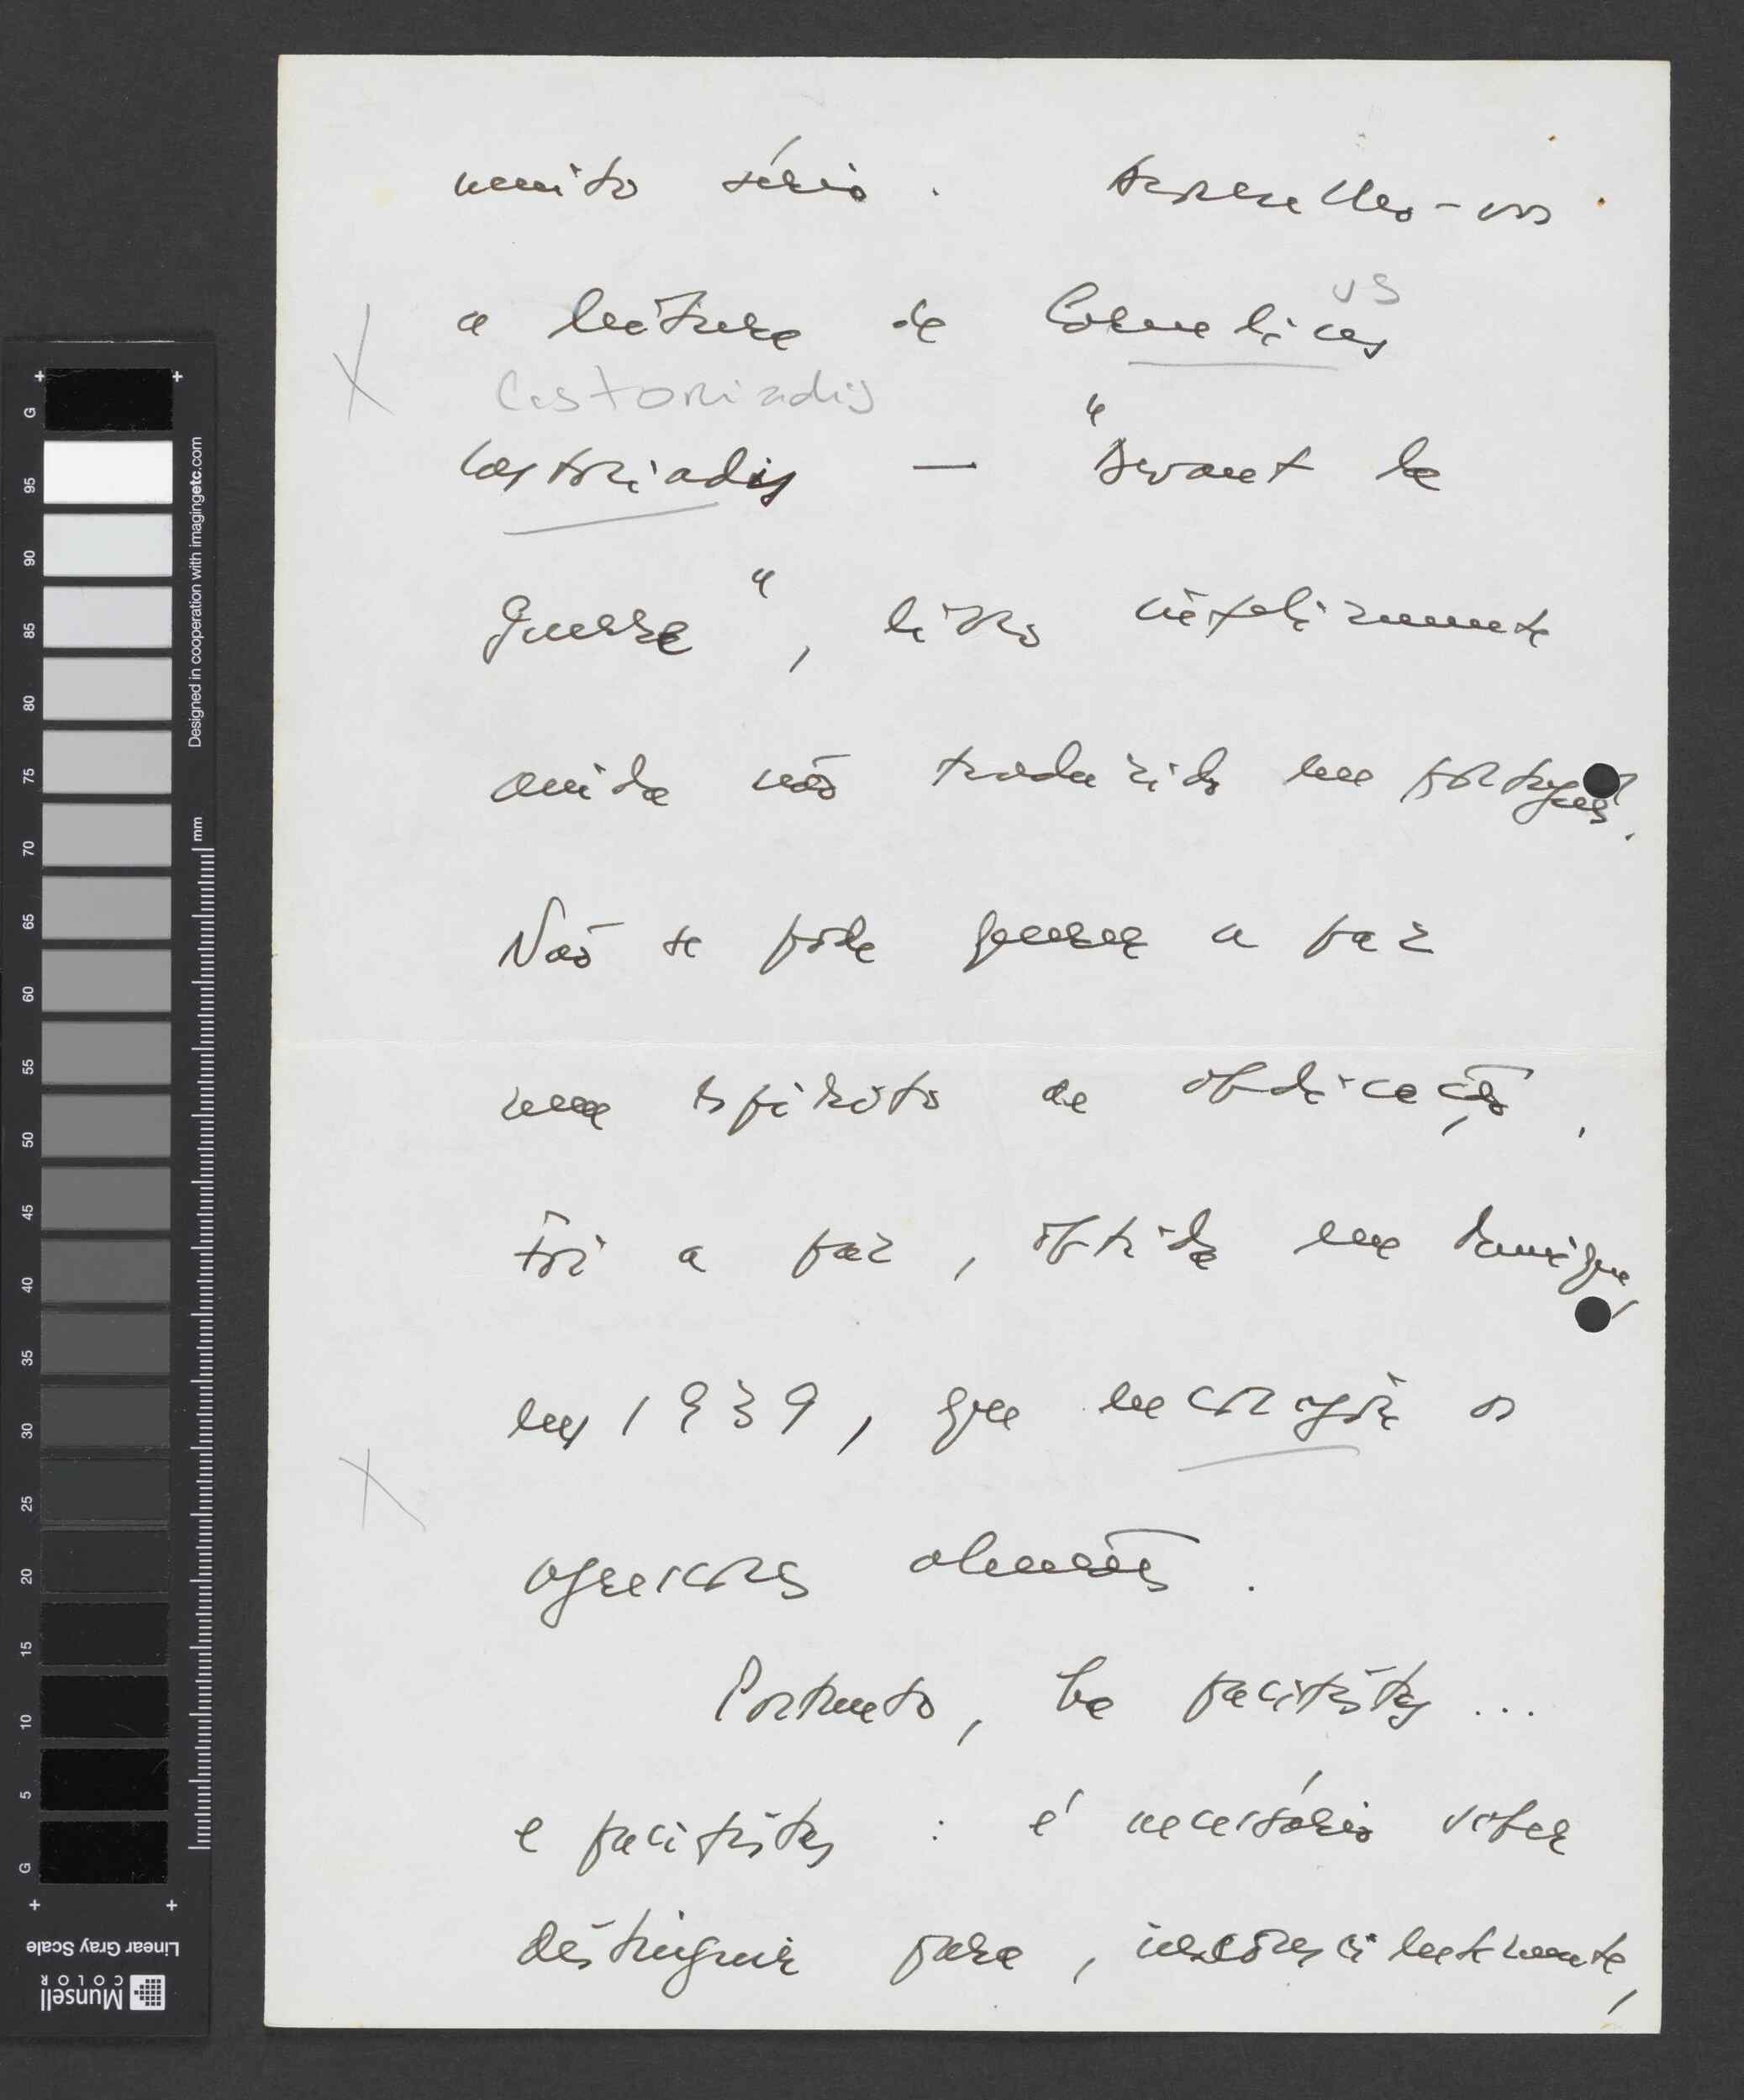 muito sério. Aconselho-vos
a leitura de Cornelius
us
Castoriadis
Castoriadis — "Devant la
guerre", livro infelizmente
ainda não traduzido em português.
Não se pode querer a paz
num espírito de abdicação.
Foi a paz, obtida em Munique,
em 1939, que encorajou os
agressores alemães.
Portanto, há pacifistas ...
e pacifistas : é necessário saber
distinguir para, inconscientemente,
G
95
90
85
80
75
70
65
60
55
50
45
40
35
30
25
20
15
10
5
G
mm
Designed in cooperation with imagingetc.com
Linear Gray Scale
Munsell
COLOR